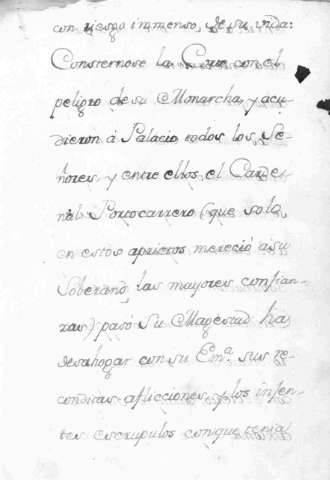 con riesgo immenso, de su vida:
Consternose la Corte con el
peligro de su Monarcha, y acu
dieron à Palacio todos los Se-
ñores, y entre ellos, el Carde
nàl Portocarrero (que solo
en estos aprietos mereciò à su
Soberano, las mayores confian-
zas) pasò Su Magestad ha
desahogar con su Em.ª sus re
conditas aflicciones, y los infen-
tes escrupulos con que tenia